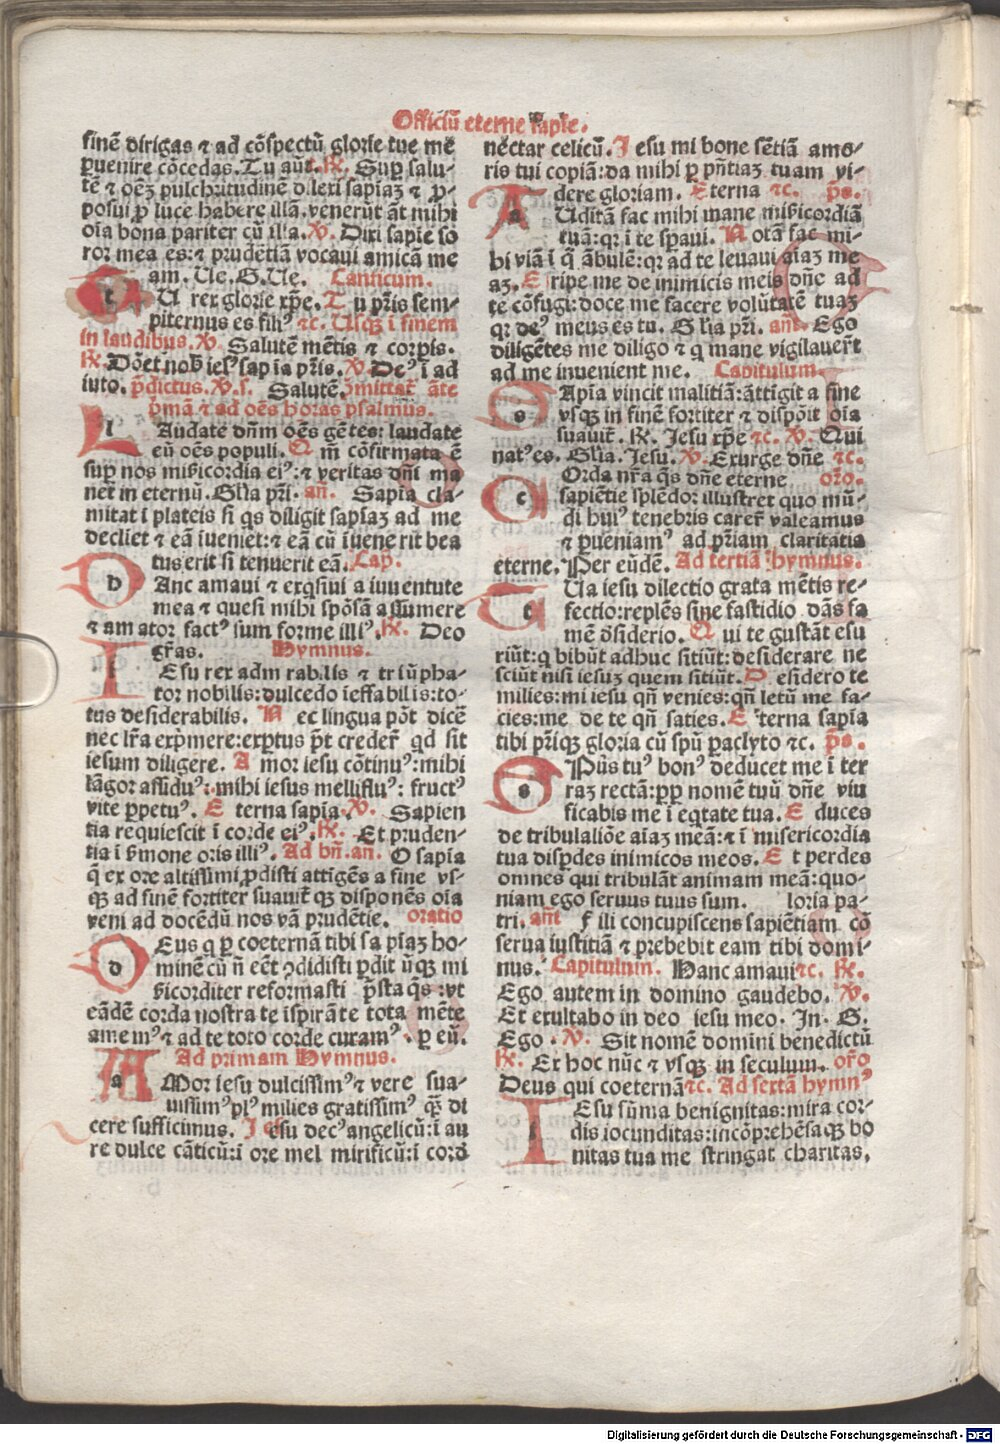 Officiū eterne sapīe.
finē dirigas ⁊ ad cōspectū glorie tue me
ꝑuenire cōcedas. Tu aūt. ℟. Suꝑ salu-
tē ⁊ oēꝫ pulchritudinē dilexi sapīaꝫ ⁊ ꝓ-
posui ꝓ luce habere illā. venerūt āt mihi
oīa bona pariter cū illa. ℣. Dixi sapīe so
ror mea es: ⁊ prudētiā vocaui amicā me
am. Ve. G. Ve. Canticum.
TU rex glorie xp̄e. Tu pr̄is sem-
piternus es filiꝰ ⁊c. Usqꝫ ī finem
in laudibus. ℣. Salutē mētis ⁊ corpīs.
℟. Dōet nob̄ iesꝰ sapīa pr̄is. ℣. Deꝰ ī ad
iuto. p̄dictus. ℣. s. Salutē. ꝓmittat̄ āte
p̄mā ⁊ ad oēs horas psalmus.
LAudate dn̄m oēs gētes: laudate
eū oēs populi. Qm̄ cōfirmata ē
suꝑ nos mīs̄icordia eiꝰ: ⁊ veritas dn̄i ma
net in eternū. Gl̄ia pr̄i. an̄. Sapīa cla-
mitat ī plateis si qs diligit sapīaꝫ ad me
decliet ⁊ eā īueniet: ⁊ eā cū īuenerit bea
tus erit si tenuerit eā. Cap̄.
DAnc amaui ⁊ exqsiui a iuuentute
mea ⁊ quesi mihi spōsā assumere
⁊ amator factꝰ sum forme illiꝰ. ℟. Deo
gr̄as. Hymnus.
IEsu rex admirabilis ⁊ triūpha-
tor nobilis: dulcedo ieffabilis: to-
tus desiderabilis. Nec lingua pōt dicē
nec lr̄a exp̄mere: exꝑtus pt̄ creder̄ qd sit
iesum diligere. Amor iesu cōtinuꝰ: mihi
lāgor assiduꝰ: mihi iesus mellifluꝰ: fructꝰ
vite ꝑpetuꝰ. Eterna sapīa. ℣. Sapien
tia requiescit ī corde eiꝰ. ℟. Et pruden-
tia ī s̄mone oris illiꝰ. Ad bn̄. an̄. O sapīa
q̄ ex ore altissimi ꝓdisti attigēs a fine vs-
qꝫ ad finē fortiter suauit̄ qꝫ disponēs oīa
veni ad docēdū nos vīā prudētie. oratio
DEus q ꝑ coeternā tibi sapīaꝫ ho-
minē cū n̄ eēt ꝯdidisti ꝑdit ūqꝫ mi
s̄icorditer reformasti p̄sta qs: vt
eādē corda nostra te īspirāte tota mēte
amemꝰ ⁊ ad te toto corde curamꝰ. ꝑ eū.
Ad primam Hymnus.
AMor iesu dulcissimꝰ ⁊ vere sua-
uissimꝰ plꝰ milies gratissimꝰ qꝫ di
cere sufficimus. Iesu decꝰ angelicū: ī au
re dulce cāticū: ī ore mel mirificū: ī corð
nectar celicū. Iesu mi bone sētiā amo-
ris tui copiā: da mihi ꝑ pn̄tiaꝫ tuam vi-
dere gloriam. Eterna ⁊c. p̄s.
AUditā fac mihi mane mis̄icordiā
tuā: qꝛ ī te sꝑaui. Notā fac mi-
hi viā ī q̄ ābulē: qꝛ ad te leuaui aīaꝫ me
aꝫ. Eripe me de inimicis meis dn̄e ad
te cōfugi: doce me facere volūtatē tuaꝫ
qꝛ deꝰ meus es tu. Gl̄ia pr̄i. an̄. Ego
diligētes me diligo ⁊ q mane vigilauer̄t
ad me inuenient me. Capitulum.
SApīa vincit malitiā: attigit a fine
vsqꝫ in finē fortiter ⁊ dispōit oīa
suauit̄. ℟. Jesu xp̄e ⁊c. ℣. Qui
natꝰ es. Gl̄ia. Jesu. ℣. Exurge dn̄e ⁊c.
COrda nr̄a qs dn̄e eterne or̄o.
sapiētie splēdor illustret quo mū-
di huiꝰ tenebris carer̄ valeamus
⁊ ꝑueniamꝰ ad pr̄iam claritatis
eterne. Per eūdē. Ad tertiā hymnus.
TUa iesu dilectio grata mētis re-
fectio: replēs sine fastidio dās fa
mē ðsiderio. Qui te gustāt esu
riūt: q bibūt adhuc sitiūt: desiderare ne
sciūt nisi iesuꝫ quem sitiūt. Desidero te
milies: mi iesu qn̄ venies: qn̄ letū me fa-
cies: me de te qn̄ saties. Eterna sapīa
tibi pr̄iqꝫ gloria cū spū ꝑaclyto ⁊c. p̄s.
SPūs tuꝰ bonꝰ deducet me ī ter
raꝫ rectā: ꝓp̄ nomē tuū dn̄e viui
ficabis me ī eqtate tua. Educes
de tribulatiōe aīaꝫ meā: ⁊ ī misericordia
tua disꝑdes inimicos meos. Et perdes
omnes qui tribulāt animam meā: quo-
niam ego seruus tuus sum. loria pa-
tri. an̄t Fili concupiscens sapiētiam cō
serua iustitiā ⁊ prebebit eam tibi domi-
nus. Capitulum. Hanc amaui ⁊c. ℟.
Ego autem in domino gaudebo. ℣.
Et exultabo in deo iesu meo. In. G.
Ego. ℣. Sit nomē domini benedictū
℟. Ex hoc nūc ⁊ vsqꝫ in seculum. or̄o
Deus qui coeternā ⁊c. Ad sextā hymnꝰ
IEsu sūma benignitas: mira cor-
dis iocunditas: incōprehēsaqꝫ bo
nitas tua me stringat charitas.
Digitalisierung gefördert durch die Deutsche Forschungsgemeinschaft - DFG